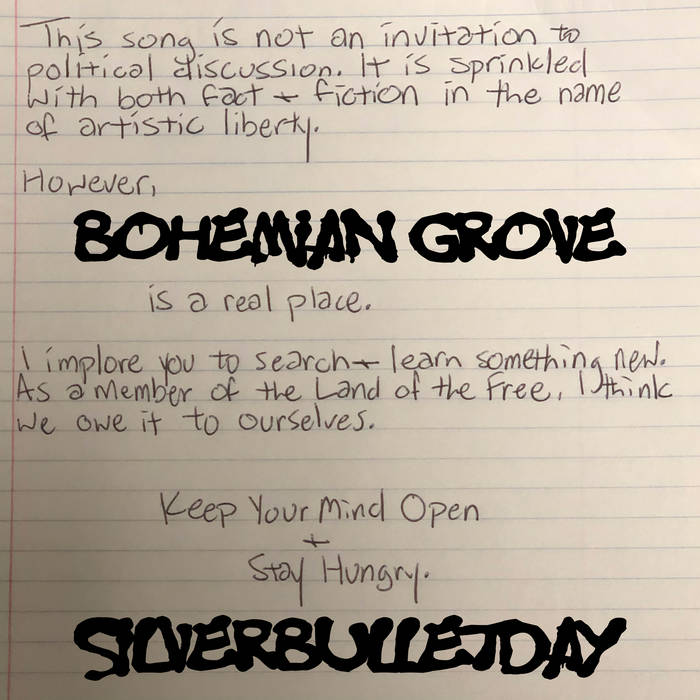 This song is not an invitation to
political discussion. It is sprinkled
with both fact + fiction in the name
of artistic liberty.
However,
BOHEMIAN GROVE
is a real place.
I implore you to search + learn something new.
As a member of the Land of the Free, I think
we owe it to ourselves.
Keep Your Mind Open
+
Stay Hungry.
SILVERBULLETDAY